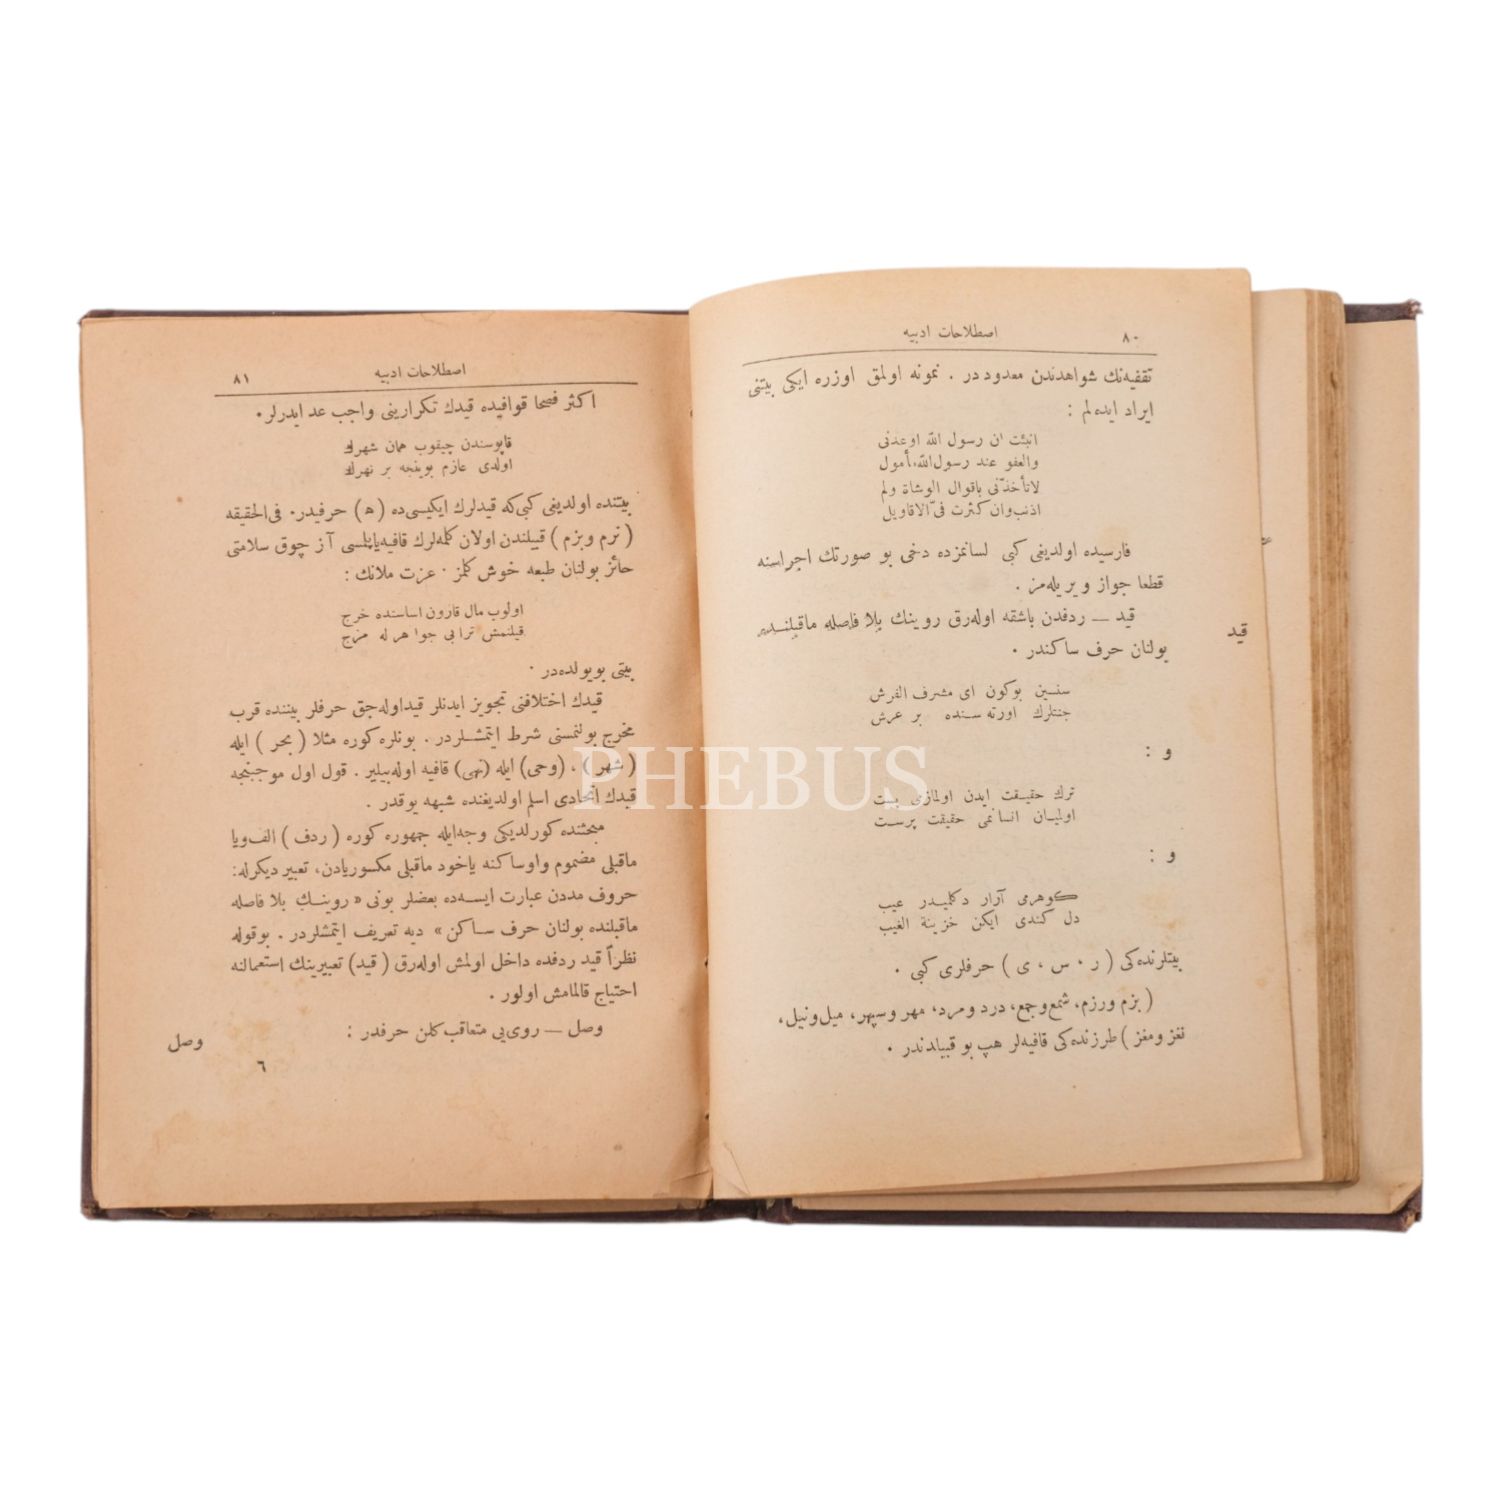 ٨٠
اصطلاحات ادبيه
تقفيه‌نك شواهدندن معدود در . نمونه اولمق اوزره ايكى بيتنى
ايراد ايده‌لم :
انبئت ان رسول الله اوعدنى
والعفو عند رسول‌الله مأمول
لاتأخذنّى باقوال الوشاة ولم
اذنب وان كثرت فىّ الاقاويل
فارسيده اولديغى كبى لسانمزده دخى بو صورتك اجراسنه
قطعا جواز ويريله‌مز .
قيد
قيد — ردفدن باشقه اوله‌رق روينك بلا فاصله ماقبلنده
بولنان حرف ساكندر .
سنسين بوكون اى مشرف الفرش
جنتلرك اورته سنده بر عرش
و :
ترك حقيقت ايدن اولمازمى پست
اوليان انسانمى حقيقت پرست
و :
كوهرمى آرار دكلميدر عيب
دل كندى ايكن خزينة الغيب
بيتلرنده‌كى ( ر ، س ، ى ) حرفلرى كبى .
( بزم ورزم، شمع وجمع، درد ومرد، مهر وسپهر، ميل ونيل،
نغز ومغز ) طرزنده‌كى قافيه‌لر هپ بو قبيلدندر .
اصطلاحات ادبيه
٨١
اكثر فصحا قوافيده قيدك تكرارينى واجب عد ايدرلر .
قاپوسندن چيقوب همان شهرك
اولدى عازم بوينجه بر نهرك
بيتنده اولديغى كبى كه قيدلرك ايكيسى‌ده (ه) حرفيدر . فى‌الحقيقه
( نرم وبزم ) قبيلندن اولان كلمه‌لرك قافيه ياپلمسى آز چوق سلامتى
حائز بولنان طبعه خوش كلمز . عزت ملانك :
اولوب مال قارون اساسنده خرج
قيلنمش ترابى جواهر له مزج
بيتى بويولده‌در .
قيدك اختلافنى تجويز ايدنلر قيد اوله‌جق حرفلر بيننده قرب
مخرج بولنمسنى شرط ايتمشلردر . بونلره كوره مثلا ( بحر ) ايله
( شهر ) ، (وحى) ايله (نهى) قافيه اوله‌بيلير . قول اول موجبنجه
قيدك اتحادى اسلم اولديغنده شبهه يوقدر .
مبحثنده كورلديكى وجه‌ايله جمهوره كوره ( ردف ) الف ويا
ماقبلى مضموم واوساكنه ياخود ماقبلى مكسور يادن، تعبير ديكرله :
حروف مددن عبارت ايسه‌ده بعضلر بونى « روينك بلا فاصله
ماقبلنده بولنان حرف ساكن » ديه تعريف ايتمشلردر . بوقوله
نظراً قيد ردفده داخل اولمش اوله‌رق ( قيد ) تعبيرينك استعمالنه
احتياج قالمامش اولور .
وصل — روى‌يى متعاقب كلن حرفدر :
وصل
٦
PHEBUS